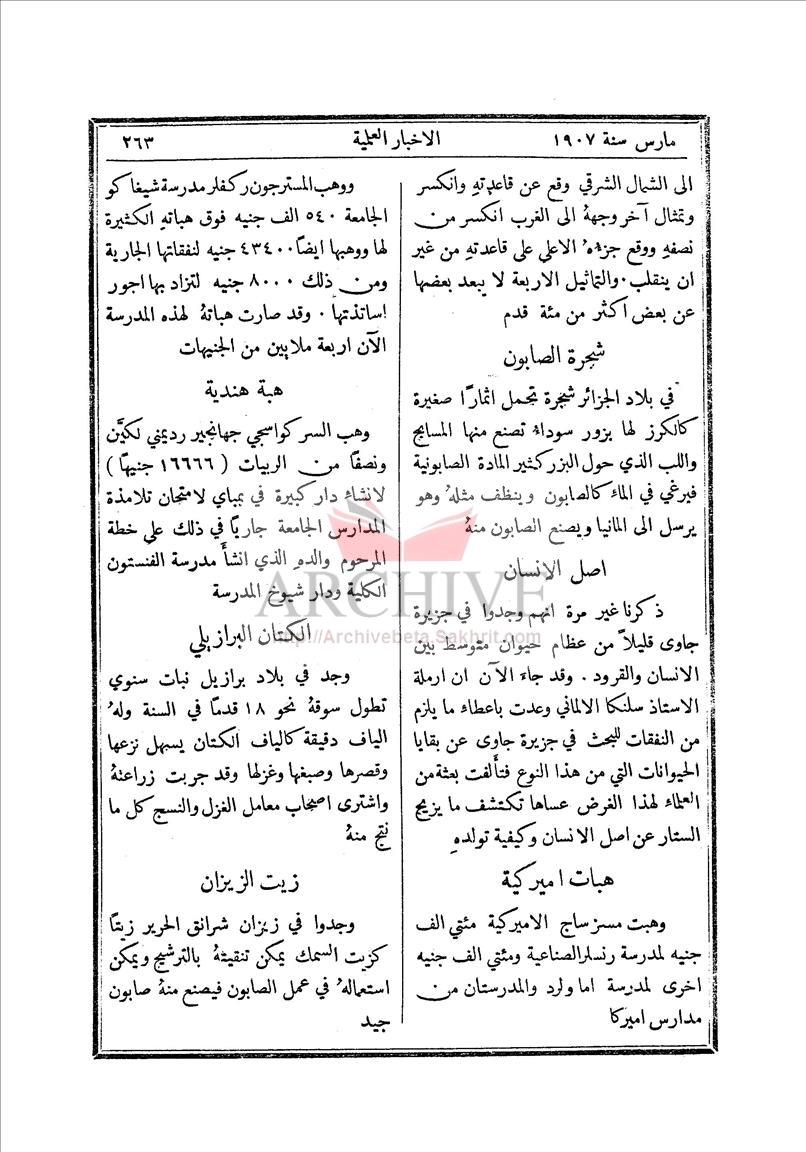 مارس سنة ١٩٠٧
الاخبار العلمية
٢٦٣
الى الشمال الشرقي وقع عن قاعدتهِ وانكسر
وتمثال آخر وجههُ الى الغرب انكسر من
نصفهِ ووقع جزءهُ الاعلى على قاعدتهِ من غير
ان ينقلب. والتماثيل الاربعة لا يبعد بعضها
عن بعض اكثر من مئة قدم
شجرة الصابون
في بلاد الجزائر شجرة تحمل اثمارًا صغيرة
كالكرز لها بزور سوداء تصنع منها المسابح
واللب الذي حول البزر كثير المادة الصابونية
فيرغي في الماء كالصابون وينظف مثلهُ وهو
يرسل الى المانيا ويصنع الصابون منهُ
اصل الانسان
ذكرنا غير مرة انهم وجدوا في جزيرة
جاوى قليلاً من عظام حيوان متوسط بين
الانسان والقرود. وقد جاء الآن ان ارملة
الاستاذ سلنكا الالماني وعدت باعطاء ما يلزم
من النفقات للبحث في جزيرة جاوى عن بقايا
الحيوانات التي من هذا النوع فتألفت بعثة من
العلماء لهذا الغرض عساها تكتشف ما يزيح
الستار عن اصل الانسان وكيفية تولدهِ
هبات اميركية
وهبت مسز ساج الاميركية مئتي الف
جنيه لمدرسة رنسلر الصناعية ومئتي الف جنيه
اخرى لمدرسة اما ولرد والمدرستان من
مدارس اميركا
ووهب المستر جون ركفلر مدرسة شيفاكو
الجامعة ٥٤٠ الف جنيه فوق هباتهِ الكثيرة
لها ووهبها ايضًا ٤٣٤٠٠ جنيه لنفقاتها الجارية
ومن ذلك ٨٠٠٠ جنيه لتزاد بها اجور
اساتذتها. وقد صارت هباتهُ لهذه المدرسة
الآن اربعة ملايين من الجنيهات
هبة هندية
وهب السر كواسجي جهانجير رديمني لكين
ونصفًا من الربيات (١٦٦٦٦ جنيهًا)
لانشاء دار كبيرة في بمباي لامتحان تلامذة
المدارس الجامعة جاريًا في ذلك على خطة
المرحوم والدهِ الذي انشأ مدرسة الفنستون
الكلية ودار شيوخ المدرسة
الكتان البرازيلي
وجد في بلاد برازيل نبات سنوي
تطول سوقهُ نحو ١٨ قدمًا في السنة ولهُ
الياف دقيقة كالياف الكتان يسهل نزعها
وقصرها وصبغها وغزلها وقد جربت زراعتهُ
واشترى اصحاب معامل الغزل والنسج كل ما
نتج منهُ
زيت الزيزان
وجدوا في زيزان شرانق الحرير زيتًا
كزيت السمك يمكن تنقيتهُ بالترشيح ويمكن
استعمالهُ في عمل الصابون فيصنع منهُ صابون
جيد
ARCHIVE
http://Archivebeta.Sakhrit.com